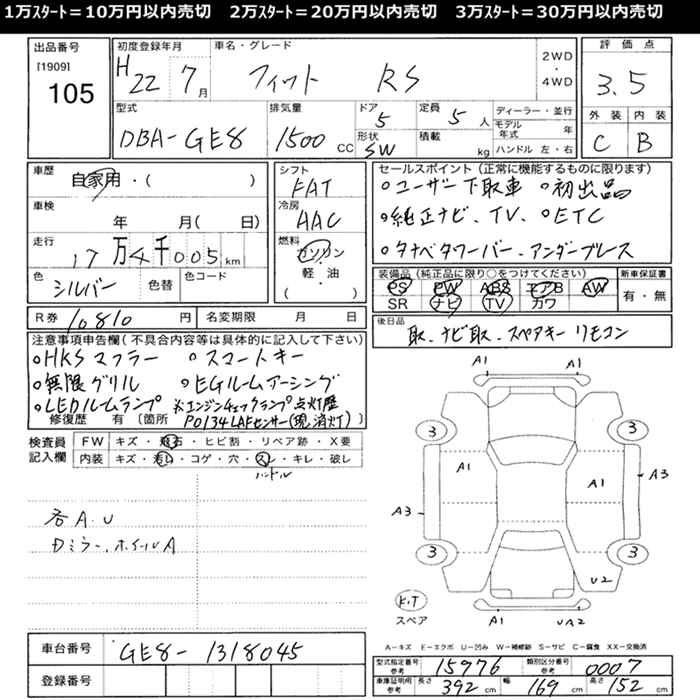 1万ｽﾀｰﾄ＝10万円以内売切　2万ｽﾀｰﾄ＝20万円以内売切　3万ｽﾀｰﾄ＝30万円以内売切
出品番号
[1909]
105
初度登録年月
H 22 7月
車名・グレード
フィット RS
2WD
・
4WD
評価点
3.5
外装 内装
C B
型式
DBA-GE8
排気量
1500 CC
ドア
5
形状
SW
定員
5人
積載
kg
ディーラー・並行
モデル年式 年
ハンドル 左・右
車歴
自家用・( )
車検
年 月( 日)
走行
17万4千005km
色
シルバー
色替
色コード
シフト
FAT
冷房
AAC
燃料
ガソリン
・
軽・油
セールスポイント（正常に機能するものに限ります）
○ユーザー下取車 ○初出品
○純正ナビ、TV、○ETC
○タナベタワーバー、アンダーブレース
装備品（純正品に限り○をつけてください）
PS PW ABS エアB AW
SR ナビ TV カワ
新車保証書
有・無
R券 10810円
名変期限 月 日
後日品
取、ナビ取、スペアキー リモコン
注意事項申告欄(不具合内容等は具体的に記入して下さい)
○HKSマフラー ○スマートキー
○無限グリル ○EGルームアーシング
○LEDルームランプ ※エンジンチェックランプ点灯歴
修復歴 有（箇所 P0134LAFセンサー(現消灯)）
検査員記入欄
FW キズ・飛石・ヒビ割・リペア跡・X要
内装 キズ・汚れ・コゲ・穴・スレ・キレ・破レ
ハンドル
各A.U
Dミラー、ホイールA
A1
3 3
A1 A1
A3 A3
3 3
U2
K.T
スペア
A1 UA2
A－キズ E－エクボ U－凹み W－補修跡 S－サビ C－腐食 XX－交換済
車台番号 GE8-1318045
登録番号
型式指定番号 参考 15976 類別区分番号 参考 0007
車庫証明用 参考 長さ 392cm 幅 169cm 高さ 152cm